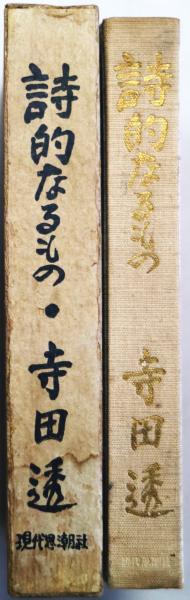 詩的なるもの・寺田透
現代思潮社
詩的なるもの 寺田透
現代思潮社